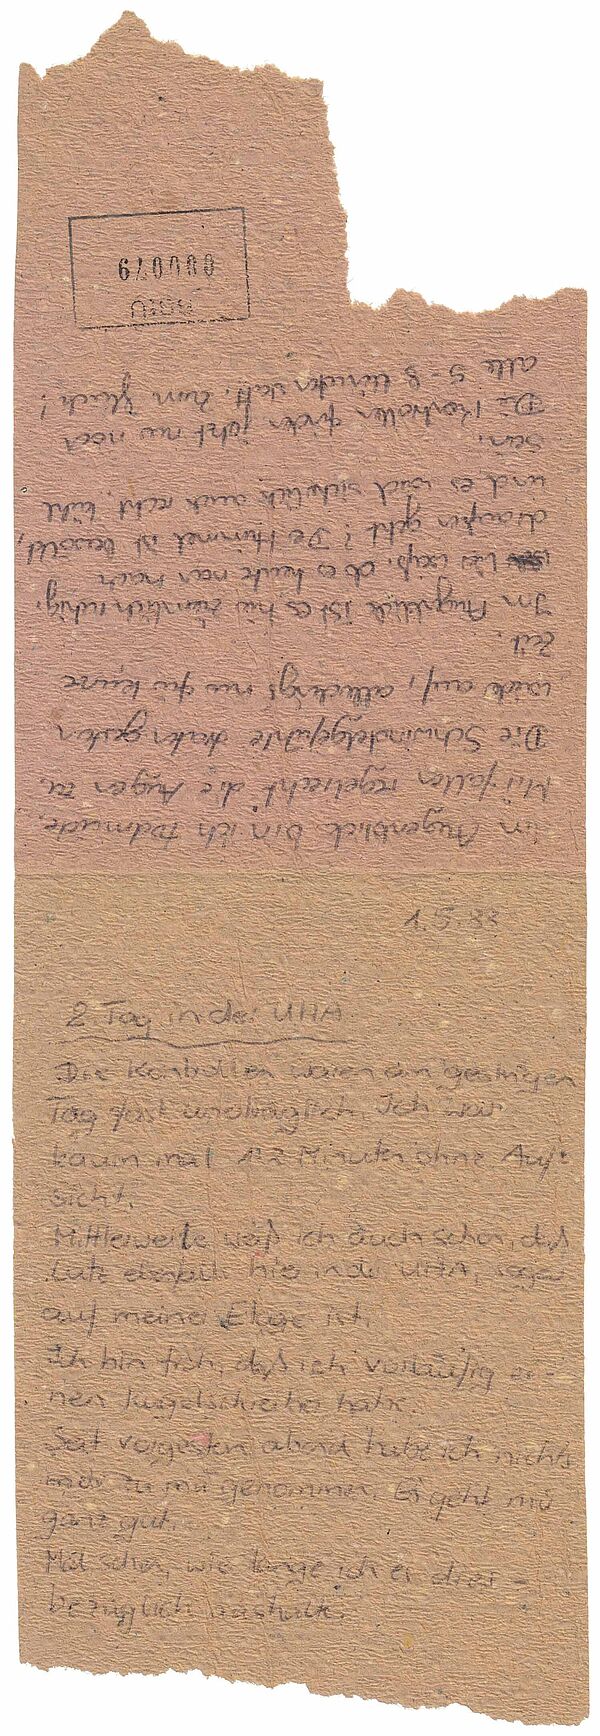 2. Tag in der UHA
Die Kontrollen waren am gestrigen
Tag fast unerträglich. Ich war
kaum mal 1-2 Minuten ohne Auf-
sicht.
Mittlerweile weiß ich auch schon, daß
Lutz ebenfalls hier in der UHA, sogar
auf meiner Etage ist.
Ich bin froh, daß ich vorläufig ei-
nen Kugelschreiber habe.
Seit vorgestern abend habe ich nichts
mehr zu mir genommen. Es geht mir
ganz gut.
Mal sehen, wie lange ich es dies-
bezüglich aushalte.
Im Augenblick bin ich todmüde,
Mir fallen regelrecht die Augen zu.
Die Schwindelgefühle traten gestern
wieder auf, allerdings nur für kurze
Zeit.
Im Augenblick ist es hier ziemlich ruhig.
Wer weiß, ob es heute noch nach
draußen geht? Der Himmel ist bewölkt,
und es wird sicherlich auch recht kühl
sein.
Die Kontrollen finden jetzt nur noch
alle 5-8 Minuten statt. Zum Glück!
BStU
000079